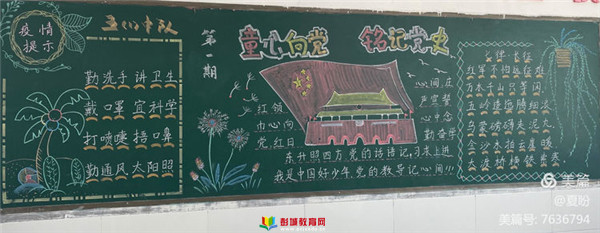 疫情
提示
五(4)中队
勤洗手讲卫生
戴口罩宜科学
打喷嚏捂口鼻
勤通风太阳照
第一期
童心向党 铭记党史
红领
巾心向
党红日
心间,在
声党誓
心中念
勤奋学
东升照四方党的话语记,习求上进
我是中国好少年,党的教导记心间!!!
七律 长征
红军不怕远征难
万水千山只等闲
五岭逶迤腾细浪
乌蒙磅礴走泥丸
金沙水拍云崖暖
大渡桥横铁索寒
彭城教育网
美篇
@夏盼
美篇号: 7636794